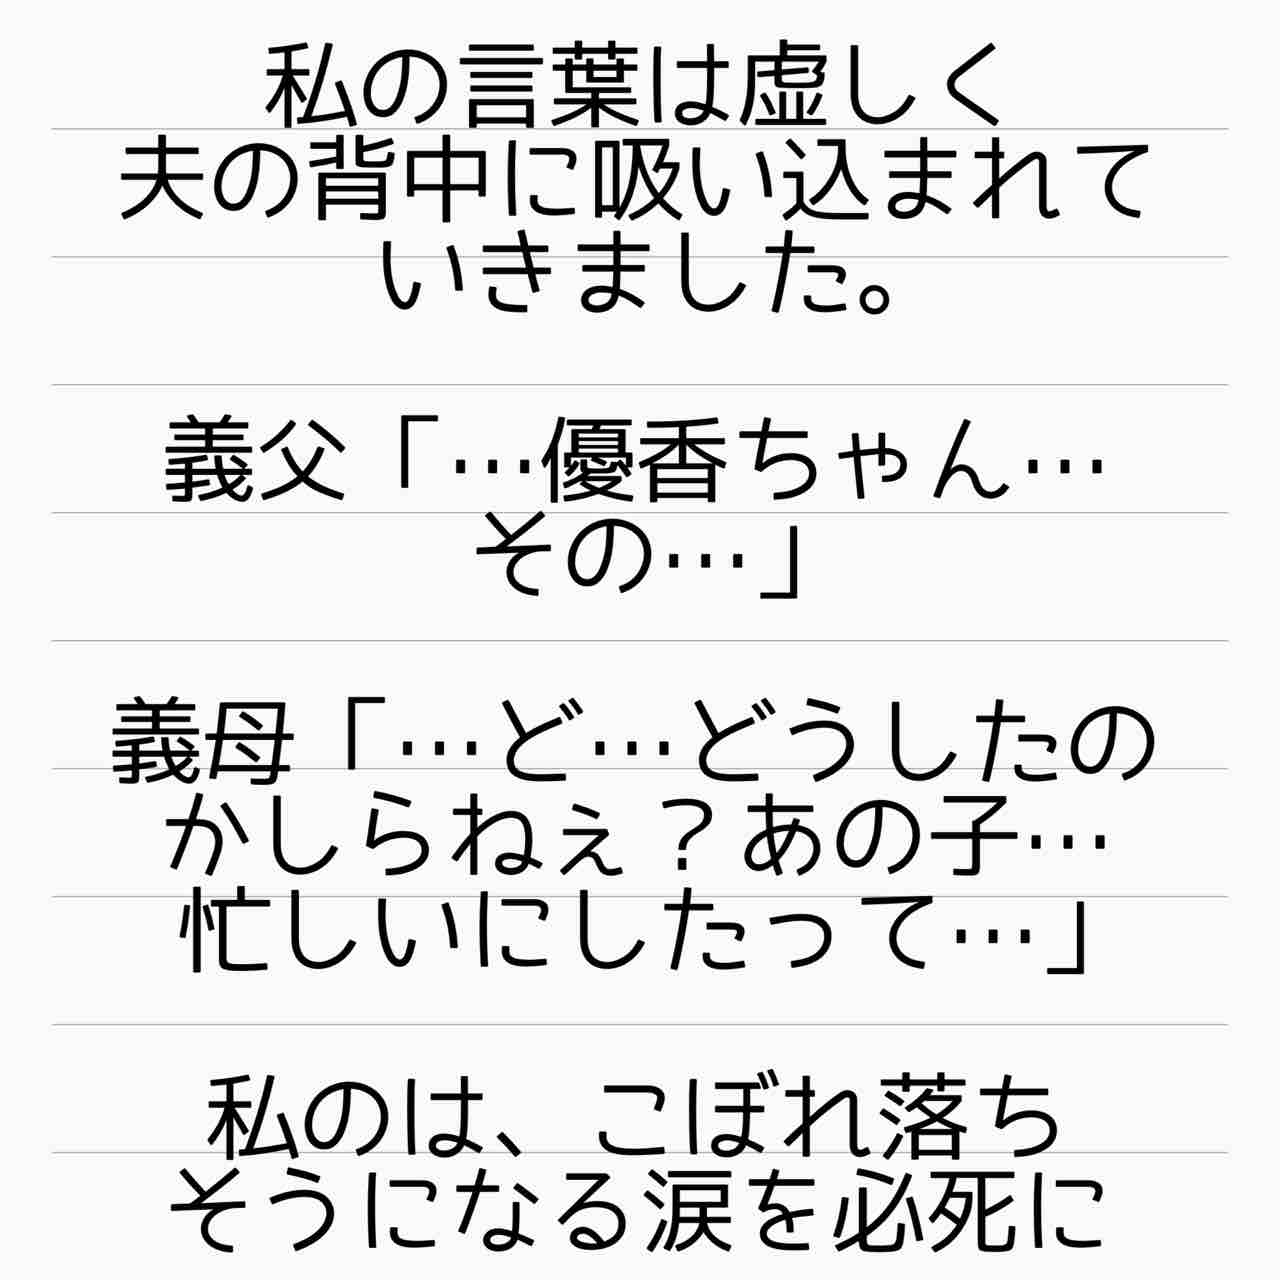 私の言葉は虚しく
夫の背中に吸い込まれて
いきました。
義父「…優香ちゃん…
その…」
義母「…ど…どうしたの
かしらねぇ？あの子…
忙しいにしたって…」
私のは、こぼれ落ち
そうになる涙を必死に